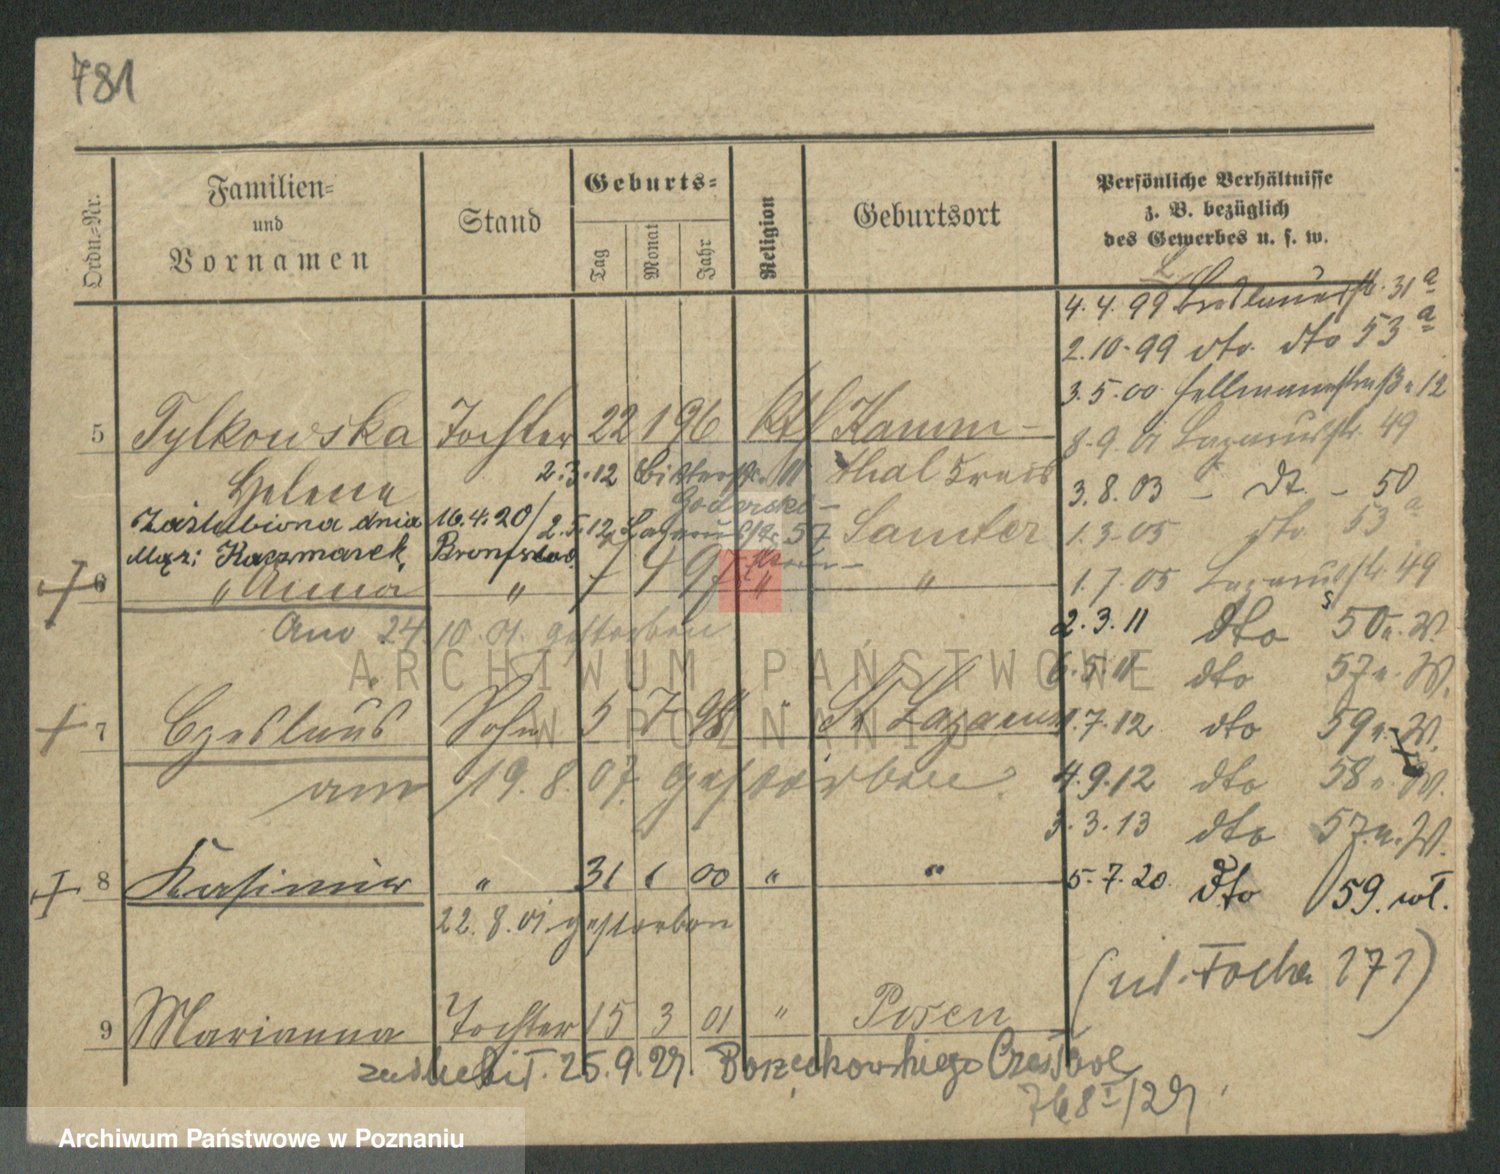 781
Ordn.-Nr.
Familien-
und
Vornamen
Stand
Geburts-
Tag
Monat
Jahr
Religion
Geburtsort
Persönliche Verhältnisse
z. B. bezüglich
des Gewerbes u. s. w.
4. 4. 99 Breslauerstr. 31a
2. 10. 99 dto. dto 53a
3. 5. 00 Hellmannstraße 12
8. 9. 01 Lazarusstr. 49
3. 8. 03 - dt. - 50
1. 3. 05 dto 53a
1. 7. 05 Lazarusstr. 49
2. 3. 11 dto 50 u. W.
6. 5. 11 dto 57 u. W.
1. 7. 12 dto 59 u. W.
4. 9. 12 dto 58 u. W.
3. 3. 13 dto 57 u. W.
5. 7. 20. dto 59. wł.
(ul. Focha 171)
5 Tylkowska Tochter 22 1 96 Kth Kamm-
Helene 2. 3. 12 11 thal Kreis
Zaślubiona dnia 16. 4. 20 / 2. 5. 12 Lazarusstr. 57 Samter
Mąż: Kaczmarek, Bronisław
6 " Anna " 1 4 97 " "
Am 24 10. 01. gestorben
7 Czeslaus Sohn 5 7 98 " St Lazarus
am 19. 8. 07. gestorben.
8 Kasimir " 31 1 00 " "
22. 8. 01. gestorben
9 Marianna Tochter 15 3 01 " Posen
zaślubił. 25. 9. 27. Borzeckowskiego Czesław
768 I/27
ARCHIWUM PAŃSTWOWE
W POZNANIU
Archiwum Państwowe w Poznaniu